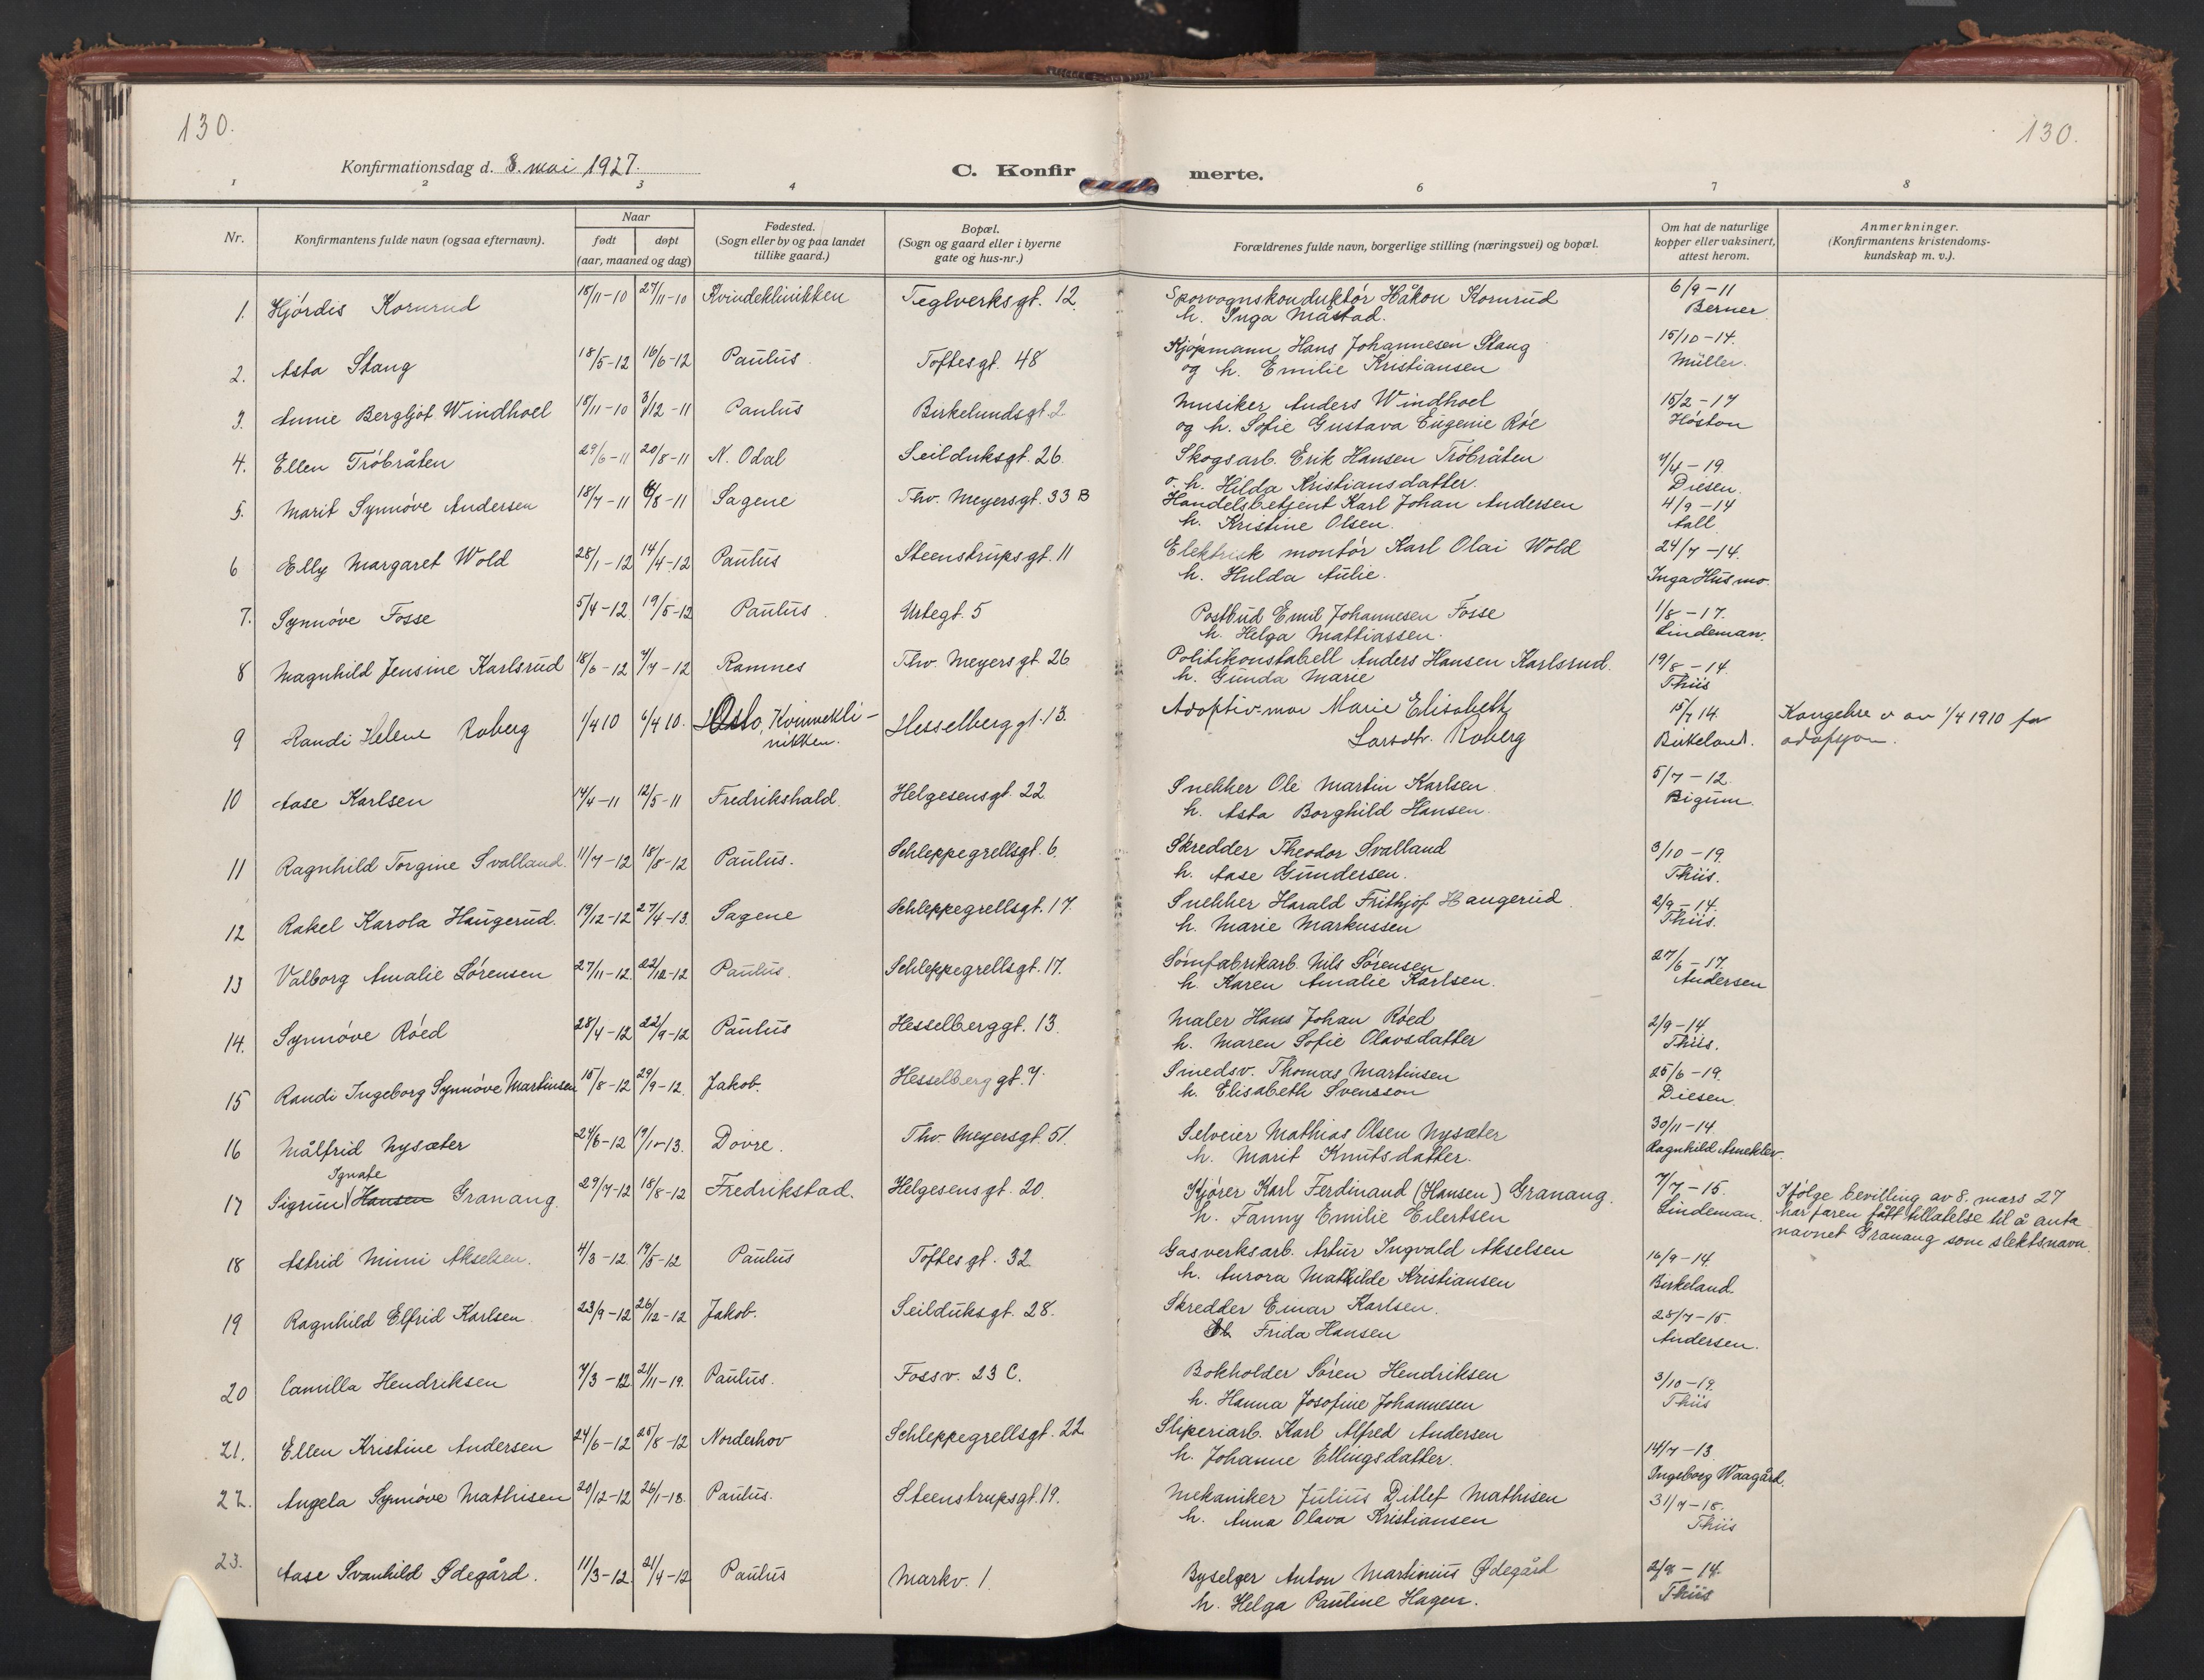 130.
130.
Konfirmationsdag d. 8. mai 1927.
C. Konfirmerte.
1 2 3 4 6 7 8
Nr.
Konfirmantens fulde navn (ogsaa efternavn).
Naar
født døpt
(aar, maaned og dag)
Fødested.
(Sogn eller by og paa landet
tillike gaard.)
Bopæl.
(Sogn og gaard eller i byerne
gate og hus-nr.)
Forældrenes fulde navn, borgerlige stilling (næringsvei) og bopæl.
Om hat de naturlige
kopper eller vaksinert,
attest herom.
Anmerkninger.
(Konfirmantens kristendoms-
kundskap m. v.).
1. Hjördis Kornrud 18/11-10 27/11-10 Kvindeklinikken Teglverksgt. 12. Sporvognskonduktör Håkon Kornrud 6/9-11
h. Inga Måstad. Berner
2. Asta Stang 18/5-12 16/6-12 Paulus Toftesgt. 48 Kjöpmann Hans Johannesen Stang 15/10-14.
og h. Emilie Kristiansen Müller.
3. Annie Bergljot Windhoel 15/11-10 3/12-11 Paulus Birkelundsgt. 2 Musiker Anders Windhoel 15/2-17
og h. Sofie Gustava Eugenie Röe Höston
4. Ellen Tröbråten 29/6-11 20/8-11 N. Odal Seilduksgt. 26. Skogsarb. Erik Hansen Tröbråten 7/4-19.
o. h. Hilda Kristiansdatter. Diesen.
5. Marit Synnöve Andersen 18/7-11 6/8-11 Sagene Thv. Meyersgt. 33 B Handelsbetjent Karl Johan Andersen 4/9-14
h. Kristine Olsen. Aall
6 Elly Margaret Wold 28/1-12 14/4-12 Paulus Steenstrupsgt. 11 Elektrisk montör Karl Olai Wold 24/7-14.
h. Hulda Aulie. Inga Husmo.
7. Synnöve Fosse 5/4-12 19/5-12 Paulus Urtegt. 5 Postbud Emil Johannesen Fosse 1/8-17.
h. Helga Mathiassen. Lindeman.
8 Magnhild Jensine Karlsrud 18/6-12 7/7-12 Ramnes Thv. Meyersgt. 26 Politikonstabell Anders Hansen Karlsrud. 19/8-14.
h. Gunda Marie Thiis
9 Randi Helene Roberg 1/4 10 6/4 10. Oslo, Kvinnekli- Hesselberggt. 13. Adoptiv-mor Marie Elisabeth 15/7 14. Kongebrev av 1/4 1910 for
nikken. Larsdtr. Roberg Birkeland. adopsjon.
10 Aase Karlsen 14/4-11 12/5-11 Fredrikshald Helgesensgt. 22. Snekker Ole Martin Karlsen 5/7-12.
h. Asta Borghild Hansen. Bigum.
11 Ragnhild Torgine Svalland. 11/7-12 18/8-12 Paulus. Schleppegrellsgt. 6. Skredder Theodor Svalland 3/10-19.
h. Aase Gundersen. Thiis.
12 Rakel Karola Haugerud. 19/12-12 27/4-13. Sagene Schleppegrellsgt. 17. Snekker Harald Frithjof Haugerud. 2/9-14.
h. Marie Markussen Thiis.
13 Valborg Amalie Sörensen 27/11-12. 22/12-12 Paulus. Schleppegrellsgt. 17. Sömfabrikarb. Nils Sörensen 27/6-17.
h. Karen Amalie Karlsen. Andersen
14. Synnöve Röed 28/4-12 22/9-12 Paulus Hesselberggt. 13. Maler Hans Johan Röed 2/9-14.
h. Maren Sofie Olavsdatter Thiis.
15 Randi Ingeborg Synnöve Martinsen 15/8-12 29/9-12. Jakob. Hesselberggt. 7. Smedsv. Thomas Martinsen 25/6-19.
h. Elisabeth Svensson Diesen.
16 Målfrid Nysæter 24/6-12 19/10-13. Dovre. Thv. Meyersgt. 51. Selveier Mathias Olsen Nysæter 30/11-14.
h. Marit Knutsdatter. Ragnhild
Ignate
17 Sigrun Hansen Granang. 29/7-12 18/8-12 Fredrikstad. Helgesensgt. 20. Kjörer Karl Ferdinand (Hansen) Granang. 7/7-15. Ifölge bevilling av 8. mars 27
h. Fanny Emilie Eilertsen Lindeman. har faren fått tillatelse til å anta
navnet Granang som slektsnavn.
18 Astrid Mimi Akselsen. 4/3-12 19/5-12 Paulus Toftesgt. 32 Gasverksarb. Artur Ingvald Akselsen 16/9-14.
h. Aurora Mathilde Kristiansen Birkeland.
19 Ragnhild Elfrid Karlsen. 23/9-12 26/12-12 Jakob. Seilduksgt. 28. Skredder Einar Karlsen. 28/7-15.
h. Frida Hansen Andersen.
20 Camilla Hendriksen 7/3-12 21/11-19. Paulus. Fossv. 23 C. Bokholder Sören Hendriksen 3/10-19.
h. Hanna Josofine Johannesen Thiis
21. Ellen Kristine Andersen 24/6-12 25/8-12 Norderhov Schleppegrellsgt. 22 Sliperiarb. Karl Alfred Andersen 14/7-13.
h. Johanne Ellingsdatter. Ingeborg Waagård.
22. Angela Synnöve Mathisen 20/12-12 26/1-13. Paulus. Steenstrupsgt. 19. Mekaniker Julius Ditlef Mathisen 31/7-18.
h. Anna Olava Kristiansen Thiis
23. Aase Svanhild Ødegård. 11/3-12. 21/4-12 Paulus Markv. 1. Byselger Anton Martinius Ødegård 2/9-14.
h. Helga Pauline Hagen. Thiis